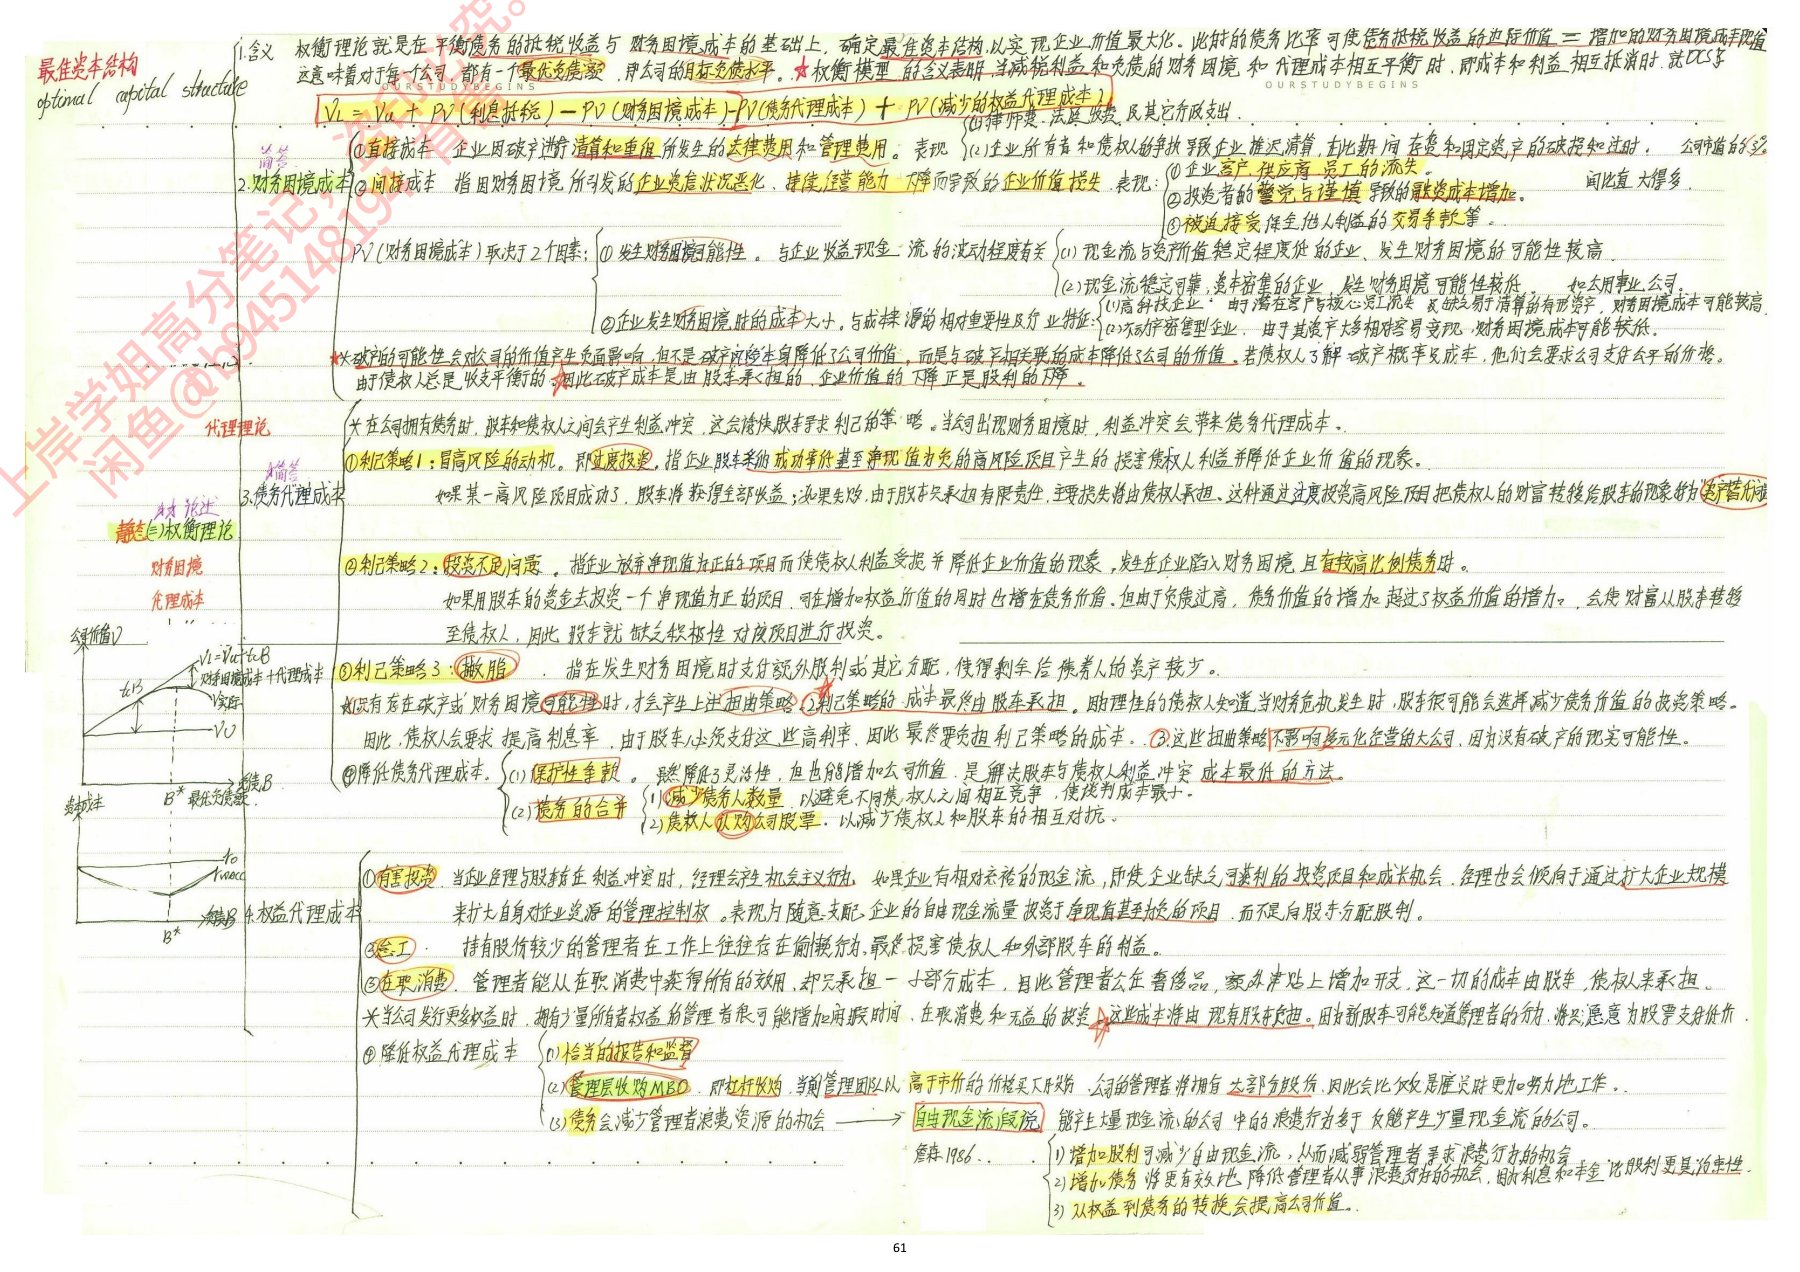 最佳资本结构
optimal capital structure
1.含义 权衡理论就是在平衡债务的抵税收益与财务困境成本的基础上，确定最佳资本结构，以实现企业价值最大化。此时的债务比率可使债务抵税收益的边际价值＝增加的财务困境成本现值
这意味着对于每一个公司，都有一个最优负债额，即公司的目标负债水平。★权衡模型的含义表明当减税利益和负债的财务困境和代理成本相互平衡时，即成本和利益相互抵消时，
OURSTUDYBEGINS OURSTUDYBEGINS
VL = Vu + PV(利息抵税) − PV(财务困境成本) − PV(债务代理成本) + PV(减少的权益代理成本)
简答
2.财务困境成本
①直接成本 企业因破产进行清算和重组所发生的法律费用和管理费用。表现
(1)律师费、法庭收费及其它行政支出.
(2)企业所有者和债权人的争执导致企业推迟清算，在此期间存货和固定资产的破损和过时. 公司市值的3%
②间接成本 指因财务困境所引发的企业资信状况恶化、持续经营能力下降而导致的企业价值损失. 表现：
①企业客户、供应商、员工的流失。
②投资者的警觉与谨慎导致的融资成本增加。
③被迫接受保全他人利益的交易条款等.
间比直大得多.
PV(财务困境成本)取决于2个因素：
①发生财务困境可能性。与企业收益现金流的波动程度有关
(1)现金流与资产价值稳定程度低的企业、发生财务困境的可能性较高.
(2)现金流稳定可靠，资本密集的企业，发生财务困境可能性较低. 如公用事业公司。
②企业发生财务困境时的成本大小。与成本来源的相对重要性及行业特征:
(1)高科技企业：由于潜在客户与核心员工流失及缺乏易于清算的有形资产，财务困境成本可能较高.
(2)不动产密集型企业，由于其资产大多相对容易变现，财务困境成本可能较低。
★※破产的可能性会对公司的价值产生负面影响，但不是破产风险本身降低了公司价值，而是与破产相关联的成本降低了公司的价值。若债权人了解破产概率及成本，他们会要求公司支付公平的价格。
由于债权人总是收支平衡的，因此破产成本是由股东承担的、企业价值的下降正是股利的下降。
代理理论
简答
3.债务代理成本
*在公司拥有债务时，股东和债权人之间会产生利益冲突，这会诱使股东寻求利己的策略。当公司出现财务困境时，利益冲突会带来债务代理成本。
①利己策略1：冒高风险的动机。即过度投资。指企业股东采纳成功率低甚至净现值为负的高风险项目产生的损害债权人利益并降低企业价值的现象。
如果某一高风险项目成功了，股东将获得全部收益；如果失败，由于股东只承担有限责任，主要损失将由债权人承担。这种通过过度投资高风险项目把债权人的财富转移给股东的现象称为"资产替代问题
论述
静态(三)权衡理论
财务困境
代理成本
②利己策略2：投资不足问题。指企业放弃净现值为正的项目而使债权人利益受损并降低企业价值的现象，发生在企业陷入财务困境且有较高比例债务时。
如果用股东的资金去投资一个净现值为正的项目，可在增加权益价值的同时也增在债务价值。但由于负债过高，债务价值的增加超过了权益价值的增加，会使财富从股东转移
至债权人，因此股东就缺乏积极性对该项目进行投资。
③利己策略3：撇脂. 指在发生财务困境时支付额外股利或其它分配，使得剩余给债券人的资产较少。
①只有存在破产或财务困境可能性时，才会产生上述扭曲策略。②利己策略的成本最终由股东承担。即理性的债权人知道当财务危机发生时，股东很可能会选择减少债务价值的投资策略。
因此，债权人会要求提高利息率，由于股东必须支付这些高利率、因此最终要负担利己策略的成本。③这些扭曲策略不影响多元化经营的大公司，因为没有破产的现实可能性。
④降低债务代理成本.
(1)保护性条款。虽然降低了灵活性，但也能增加公司价值，是解决股东与债权人利益冲突成本最低的方法。
(2)债务的合并
1)减少债务人数量，以避免不同债权人之间相互竞争，使谈判成本最小。
2)债权人认购公司股票. 以减少债权人和股东的相互对抗。
公司价值V
VL=Vu+tcB
财务困境成本+代理成本
tcB
V实际
VU
负债B
B* 最优负债额.
资本成本
r0
rwacc
负债B
B*
4.权益代理成本
①有害投资. 当企业经理与股东存在利益冲突时，经理会产生机会主义行为. 如果企业有相对充裕的现金流，即使企业缺乏可获利的投资项目和成长机会，经理也会倾向于通过扩大企业规模
来扩大自身对企业资源的管理控制权。表现为随意支配企业的自由现金流量投资于净现值甚至为负的项目，而不是向股东分配股利。
②怠工. 持有股份较少的管理者在工作上往往存在偷懒行为，最终损害债权人和外部股东的利益。
③在职消费. 管理者能从在职消费中获得所有的效用、却只承担一小部分成本，因此管理者会在奢侈品，额外津贴上增加开支，这一切的成本由股东，债权人来承担。
*当公司发行更多权益时，拥有少量所有者权益的管理者很可能增加闲暇时间，在职消费和无益的投资★这些成本将由现有股东负担。因为新股东可能知道管理者的行为，将只愿意为股票支付低价.
④降低权益代理成本
(1)恰当的报告和监督
(2)管理层收购MBO，即杠杆收购，当前管理团队以高于市价的价格买下股份，公司的管理者将拥有大部分股份、因此会比仅仅是雇员时更加努力地工作。
(3)债务会减少管理者浪费资源的机会 → 自由现金流假说 能产生大量现金流的公司中的浪费行为多于仅能产生少量现金流的公司。
詹森1986..
1)增加股利可减少自由现金流，从而减弱管理者寻求浪费行为的机会.
2)增加债务将更有效地降低管理者从事浪费行为的机会，因为利息和本金比股利更具治束性.
3)从权益到债务的转换会提高公司价值。
上岸学姐高分笔记，盗印必究。
闲鱼@b94514819411有售
61